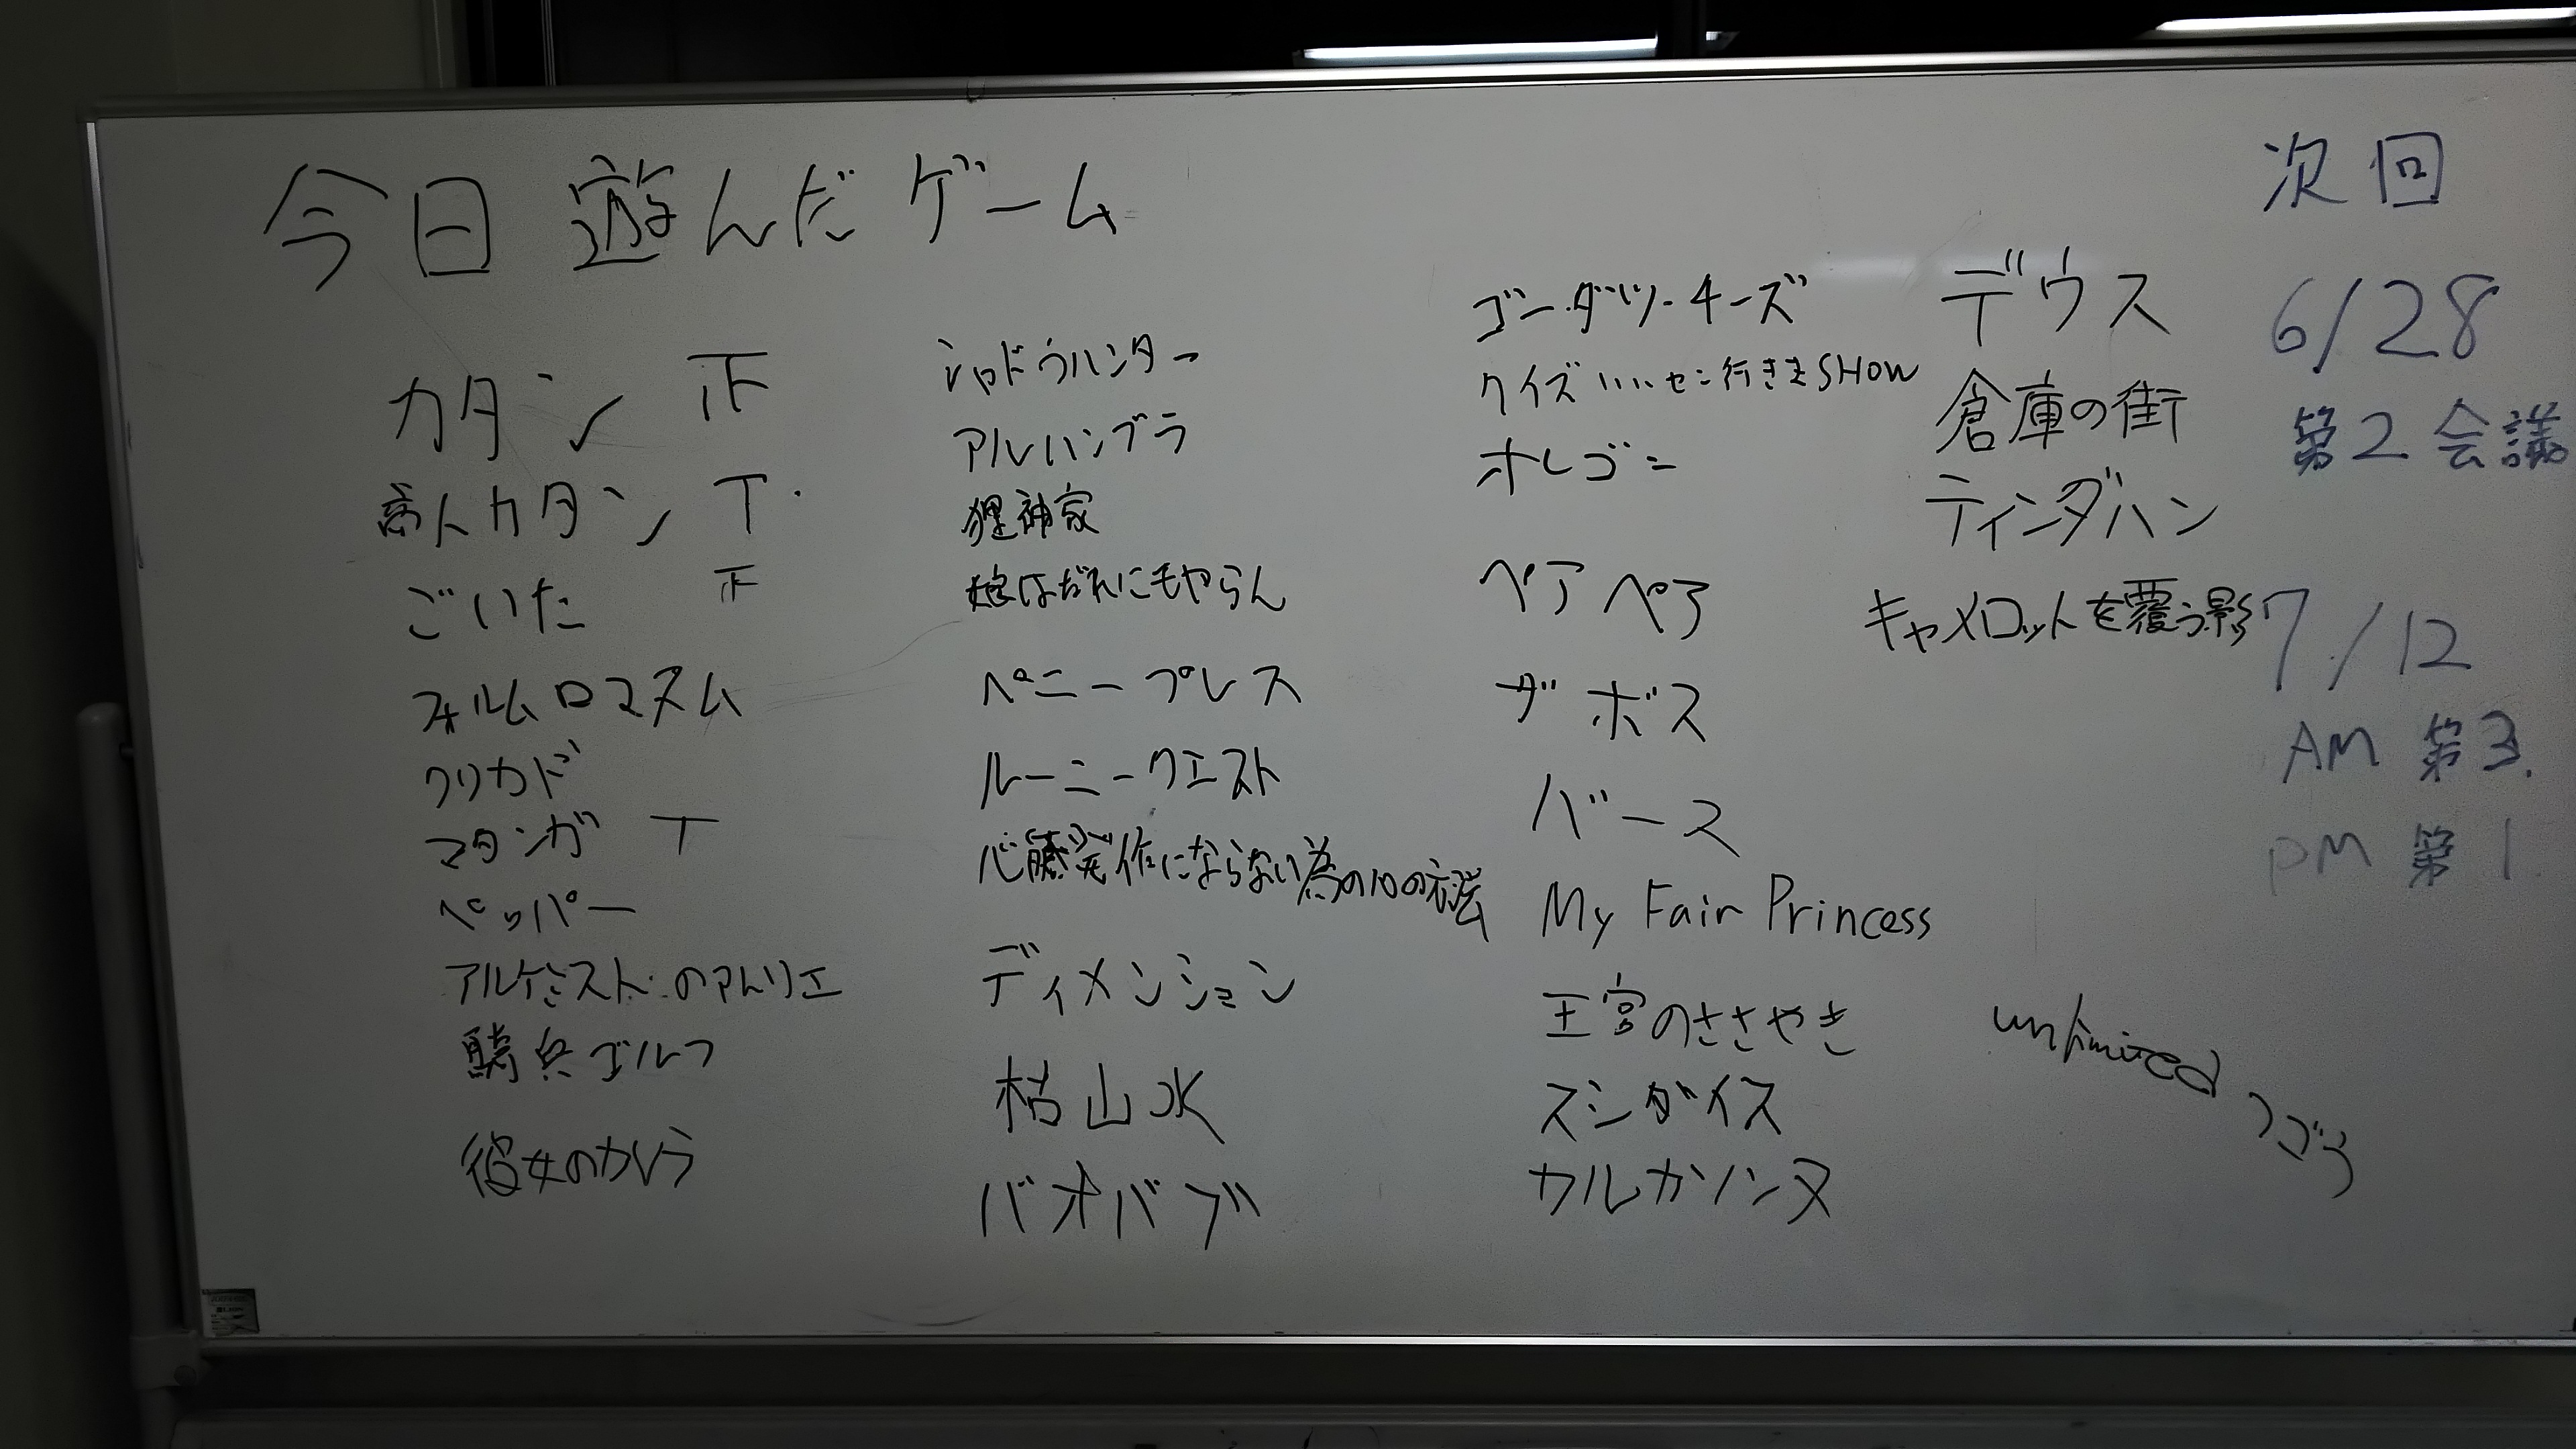 今日遊んだゲーム
カタン 正
商人カタン T
ごいた 正
フォルムロマヌム
クリカド
マタンガ T
ペッパー
アルケミストのアトリエ
騎兵ゴルフ
彼女のカレラ
シャドウハンター
アルハンブラ
狸神家
娘はだれにもやらん
ペニープレス
ルーニークエスト
心臓発作にならない為の10の方法
ディメンション
枯山水
バオバブ
ゴーダツーチーズ
クイズいいセン行きまSHOW
オレゴン
ペアペア
ザボス
バース
My Fair Princess
王宮のささやき
スシダイス
カルカソンヌ
デウス
倉庫の街
ティンダハン
キャメロットを覆う影
unlimited
次回
6/28
第2会議
7/12
AM 第3.
PM 第1